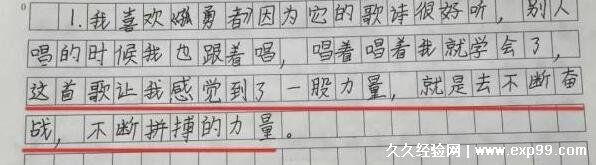 1.我喜欢《孤勇者》因为它的歌诗很好听，别人
唱的时候我也跟着唱，唱着唱着我就学会了，
这首歌让我感觉到了一股力量，就是去不断奋
战，不断拼搏的力量。
久久经验网
www.exp99.com